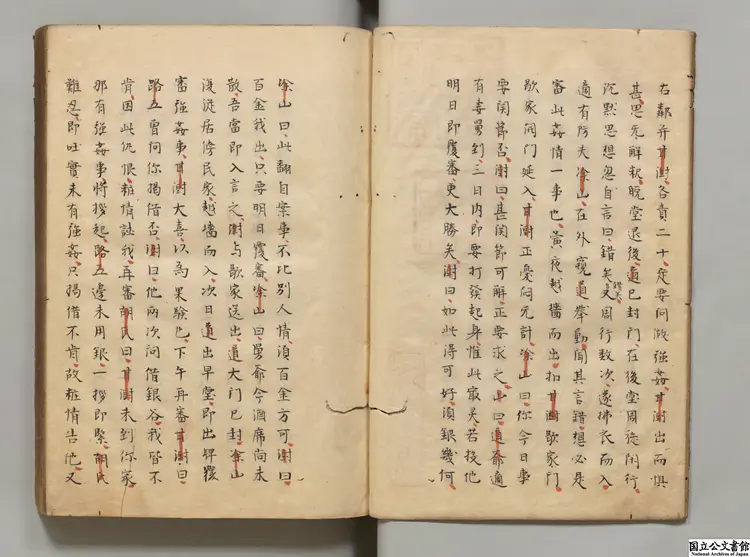 右鄰并甘澍各責二十、定要問做強姦、甘澍出而惧
甚、思无解釈、晚堂退後、道已封門、在後堂周旋閑行、
沉默思想、忽自言曰、錯矣、又周行数次、遂拂衣而入、
錯矣、
適有防夫凃山、在外窺道挙動、聞其言錯、想必是
審此姦情一事也、黃夜越墻而出、扣甘澍歇家門、
歇家開門延入、甘澍正憂悶无計、凃山曰、你今日事
要関節否、澍曰、甚関節可解、正要求之、山曰、道爺適
有妻舅到、三日内、即要打發起身、惟此最灵、若投他
明日即覆審更大勝矣、澍曰、如此得可好、須銀幾何、
凃山曰、此翻自案事、不比別人情、須百金方可、澍曰、
百金我出、只要明日覆審、凃山曰、舅爺今酒席尚未
散、吾當即入言之、澍与歇家送出、道大門已封、凃山
復從居傍民家、越墻而入、次日道出早堂、即出牌覆
審強姦事、甘澍大喜、以為果驗也、下午再審甘澍曰、
路五曾问你揭借否、澍曰、他両次问借銀谷、我皆不
肯、因此仇恨、粧情詃我、再審胡氏曰、甘澍未到你家、
那有強姦事、將拶起、路五邊未用銀、一拶即緊、胡氏
難忍、即吐實未有強姦、只揭借不肯、故粧情告他、又
国立公文書館
National Archives of Japan